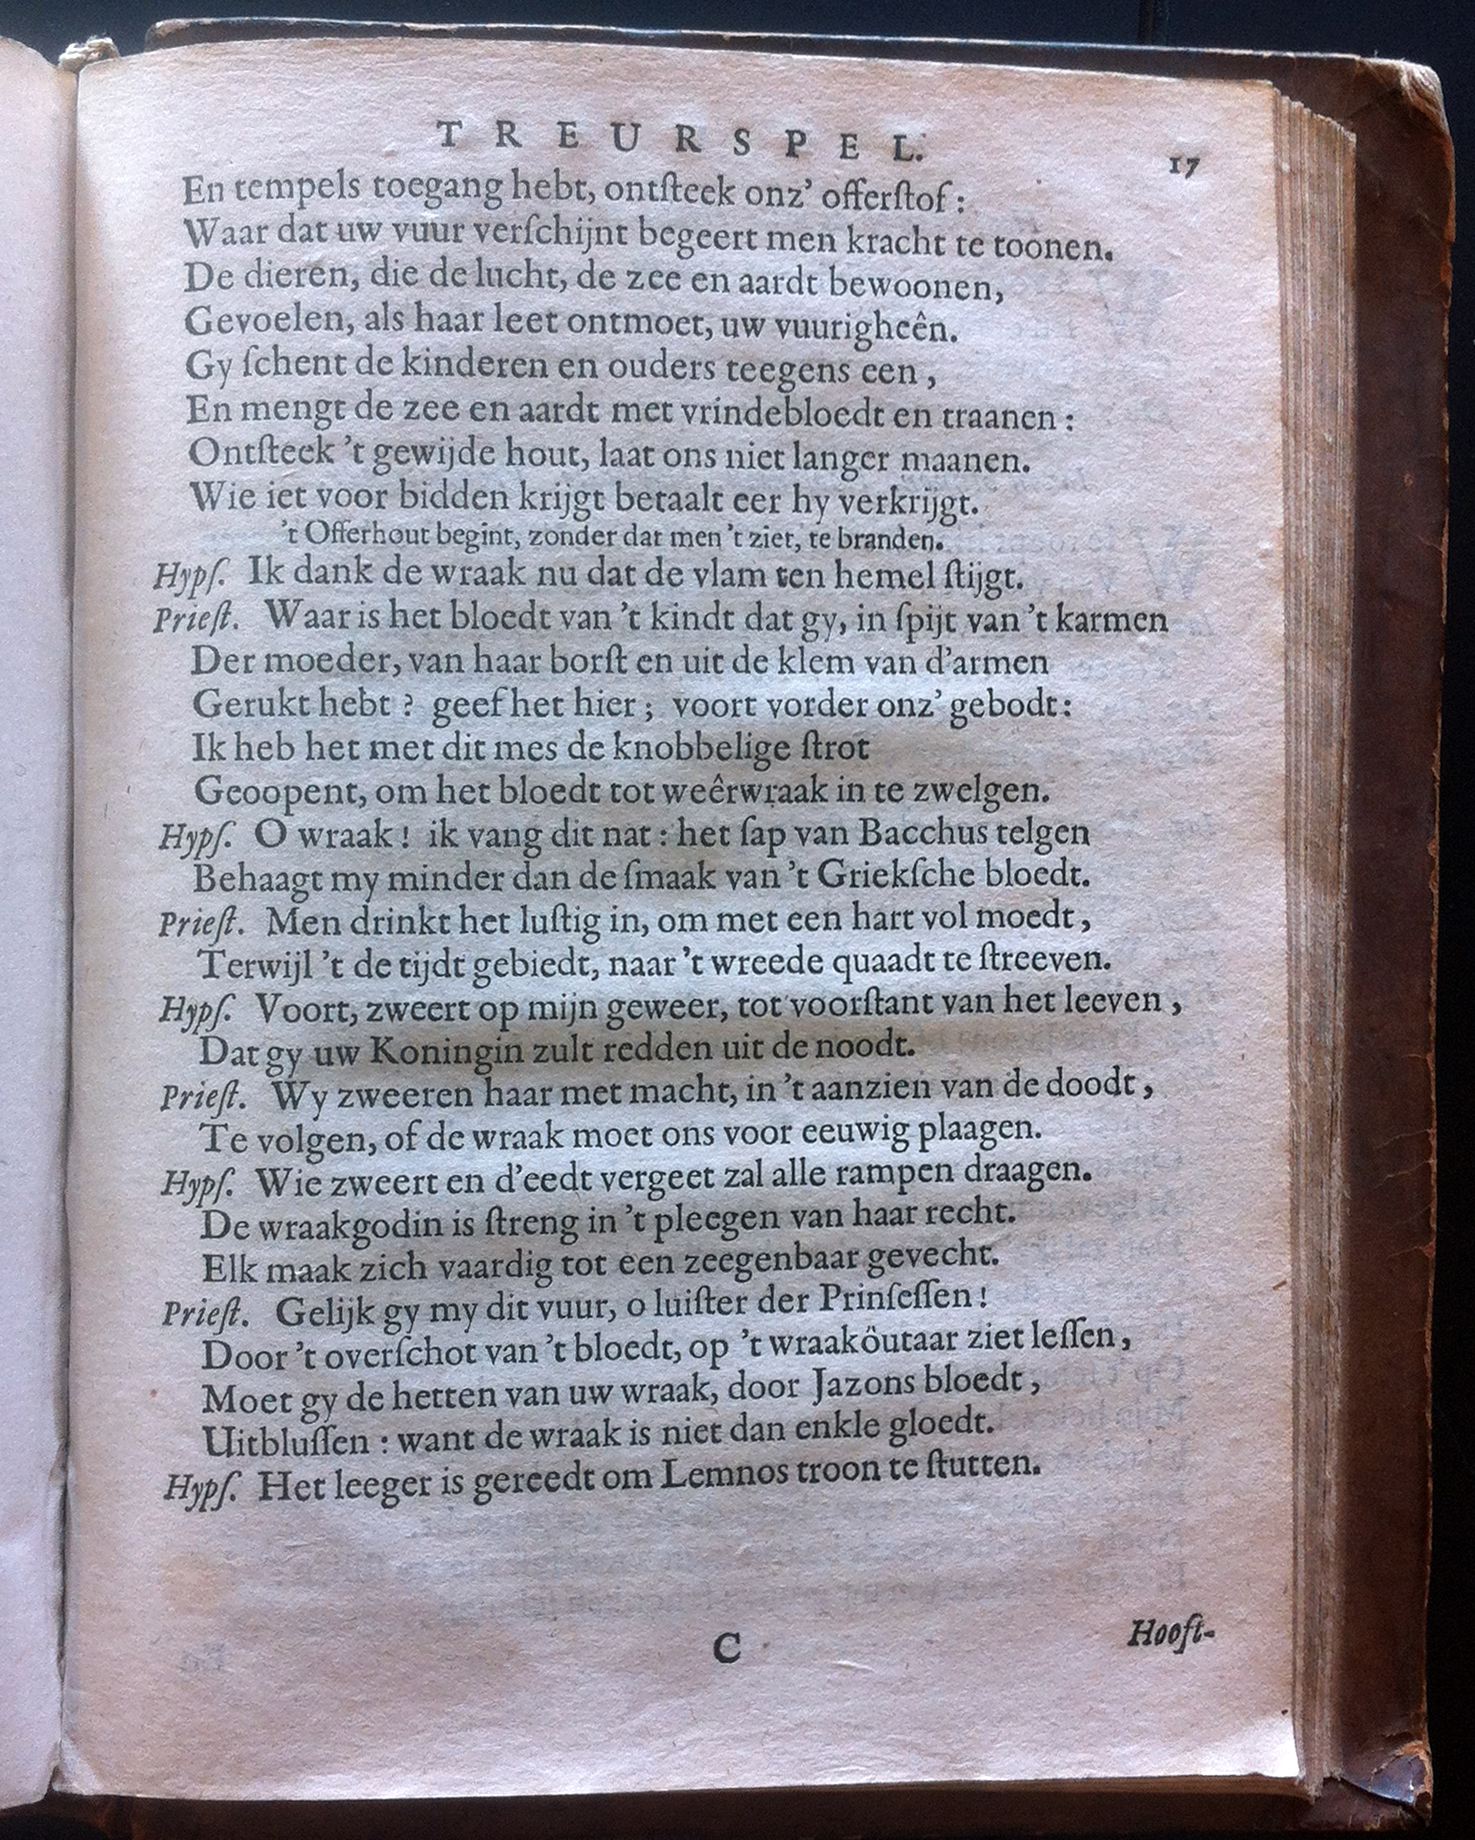 TREURSPEL. 17
En tempels toegang hebt, ontſteek onz' offerſtof:
Waar dat uw vuur verſchijnt begeert men kracht te toonen.
De dieren, die de lucht, de zee en aardt bewoonen,
Gevoelen, als haar leet ontmoet, uw vuurigheên.
Gy ſchent de kinderen en ouders teegens een,
En mengt de zee en aardt met vrindebloedt en traanen:
Ontſteek 't gewijde hout, laat ons niet langer maanen.
Wie iet voor bidden krijgt betaalt eer hy verkrijgt.
't Offerhout begint, zonder dat men 't ziet, te branden.
Hypſ. Ik dank de wraak nu dat de vlam ten hemel ſtijgt.
Prieſt. Waar is het bloedt van 't kindt dat gy, in ſpijt van 't karmen
Der moeder, van haar borſt en uit de klem van d'armen
Gerukt hebt? geef het hier; voort vorder onz' gebodt:
Ik heb het met dit mes de knobbelige ſtrot
Geoopent, om het bloedt tot weêrwraak in te zwelgen.
Hypſ. O wraak! ik vang dit nat: het ſap van Bacchus telgen
Behaagt my minder dan de ſmaak van 't Griekſche bloedt.
Prieſt. Men drinkt het luſtig in, om met een hart vol moedt,
Terwijl 't de tijdt gebiedt, naar 't wreede quaadt te ſtreeven.
Hypſ. Voort, zweert op mijn geweer, tot voorſtant van het leeven,
Dat gy uw Koningin zult redden uit de noodt.
Prieſt. Wy zweeren haar met macht, in 't aanzien van de doodt,
Te volgen, of de wraak moet ons voor eeuwig plaagen.
Hypſ. Wie zweert en d'eedt vergeet zal alle rampen draagen.
De wraakgodin is ſtreng in 't pleegen van haar recht.
Elk maak zich vaardig tot een zeegenbaar gevecht.
Prieſt. Gelijk gy my dit vuur, o luiſter der Prinſeſſen!
Door 't overſchot van 't bloedt, op 't wraaköutaar ziet leſſen,
Moet gy de hetten van uw wraak, door Jazons bloedt,
Uitbluſſen: want de wraak is niet dan enkle gloedt.
Hypſ. Het leeger is gereedt om Lemnos troon te ſtutten.
C Hooft-